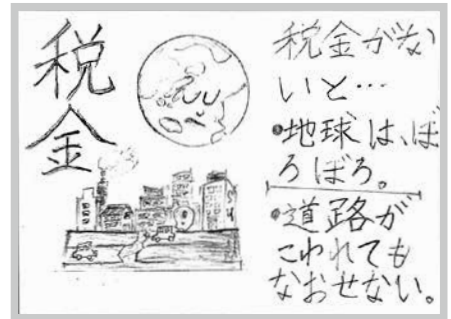 税金
税金がな
いと…
•地球は、ぼ
ろぼろ。
•道路が
こわれても
なおせない。